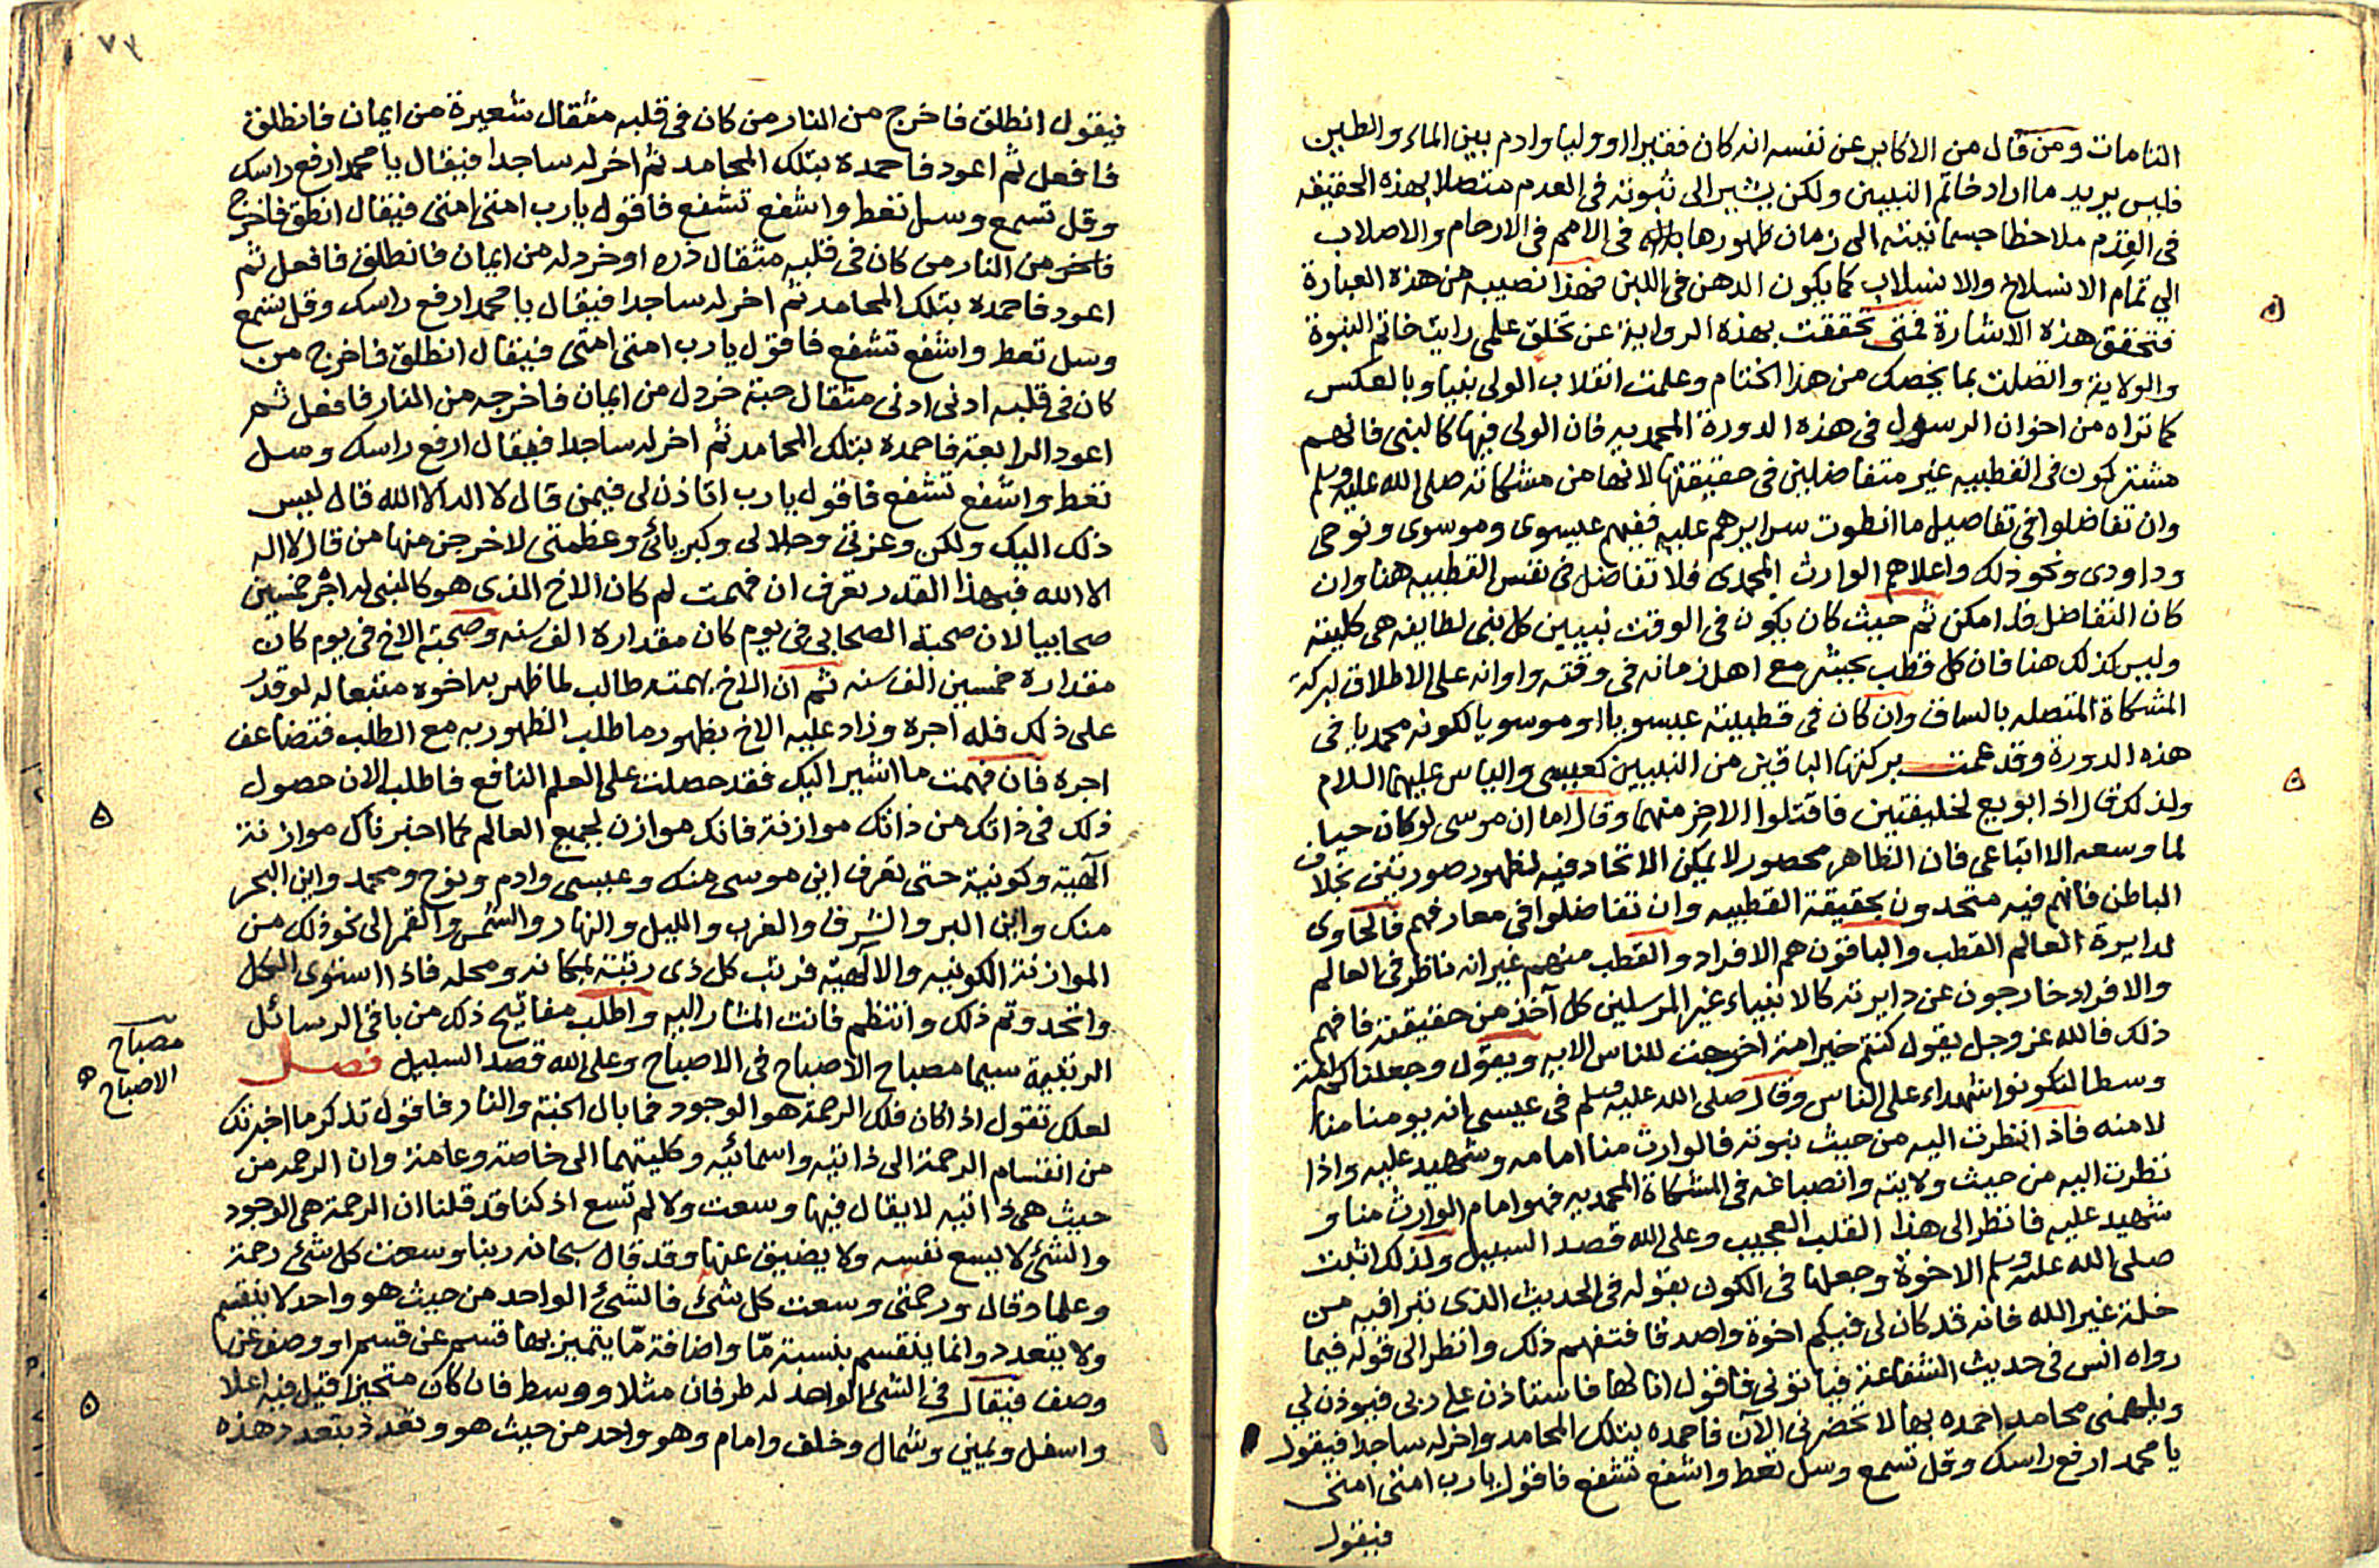 التامات ومن قال من الاكابر عن نفسه انه كان فقيرا او وليا وادم بين الماء والطين
فليس يريد ما اراد خاتم النبيين ولكن يشير الى ثبوته في العدم متصلا بهذه الحقيقه
في القدم ملاحظا جسمانيته الى زمان ظهورها في الامم في الارحام والاصلاب
الي تمام الانسلاخ والانسلاب كما يكون الدهن في اللبن فهذا نصيبه من هذه العبارة
فتحقق هذه الاشارة فمتى تحققت بهذه الرواية عن تخلق علمي رايت خاتم النبوة
والولاية واتصلت بما يخصك من هذا الختام وعلمت انقلاب الولى بنيا وبالعكس
كما تراه من اخوان الرسول في هذه الدورة المحمديه فان الولى فيها كالنبى فانهم
مشتركون في القطبيه غير متفاضلين في حقيقتها لانها من مشكاته صلى الله عليه وسلم
وان تفاضلوا في تفاصيل ما انطوت سرايرهم عليه ففيهم عيسوى وموسوى ونوحى
وداودى ونحو ذلك واعلاهم الوارث المحمدى فلا تفاضل في نفس القطبيه هنا وان
كان التفاضل قد امكن ثم حيث كان يكون في الوقت نبيين كل نبى لطايفه هى كليته
وليس كذلك هنا فان كل قطب بحيثه مع اهل زمانه في وقته واوانه على الاطلاق لبركة
المشكاة المتصله بالساق وان كان في قطبيته عيسويا او موسويا لكونه محمديا في
هذه الدورة وقد عمت بركتها الباقين من النبيين كعيسى والياس عليهما السلام
ولذلك قال اذا بويع لخليفتين فاقتلوا الاخر منهما وقال اما ان موسى لو كان حيا
لما وسعه الا اتباعى فان الظاهر محصور لا يمكن الاتحاد فيه لظهور صورتين بخلاف
الباطن فانهم فيه متحدون بحقيقة القطبيه وان تفاضلوا في معارفهم فالحاوى
لدايرة العالم القطب والباقون هم الافراد والقطب منهم غير انه ناظر في العالم
والافراد خارجون عن دايرته كالانبياء غير المرسلين كل آخذ من حقيقته فافهم
ذلك فالله عز وجل يقول كنتم خير امة اخرجت للناس الايه ويقول وجعلناكم امة
وسطا لتكونوا شهداء على الناس وقال صلى الله عليه وسلم في عيسى انه يومنا منا
لا منه فاذا نظرت اليه من حيث نبوته فالوارث منا امامه وشهيد عليه واذا
نظرت اليه من حيث ولايته وانصباغه في المشكاة المحمديه فهو امام الوارث منا و
شهيد عليه فانظر الى هذا القلب العجيب وعلى الله قصد السبيل ولذلك اثبت
صلى الله عليه وسلم الاخوة وجعلها في الكون بقوله في الحديث الذى تبرا فيه من
خلة غير الله فانه قد كان لى فيكم اخوة واصدقا فتفهم ذلك وانظر الى قوله فيما
رواه انس في حديث الشفاعة فياتونى فاقول انا لها فاستاذن على ربى فيوذن لي
ويلهمنى محامد احمده بها لا تحضرنى الآن فاحمده بتلك المحامد واخر له ساجدا فيقول
يا محمد ارفع راسك وقل تسمع وسل تعط واشفع تشفع فاقول يا رب امتى امتى
فيقول
فيقول انطلق فاخرج من النار من كان في قلبه مثقال شعيرة من ايمان فانطلق
فافعل ثم اعود فاحمده بتلك المحامد ثم اخر له ساجدا فيقال يا محمد ارفع راسك
وقل تسمع وسل تعط واشفع تشفع فاقول يا رب امتى امتى فيقال انطلق فاخرج
فاخر من النار من كان في قلبه مثقال ذره او خردله من ايمان فانطلق فافعل ثم
اعود فاحمده بتلك المحامد ثم اخر له ساجدا فيقال يا محمد ارفع راسك وقل تسمع
وسل تعط واشفع تشفع فاقول يا رب امتى امتى فيقال انطلق فاخرج من
كان في قلبه ادنى ادنى مثقال حبة خردل من ايمان فاخرجه من النار فافعل ثم
اعود الرابعة فاحمده بتلك المحامد ثم اخر له ساجدا فيقال ارفع راسك وسل
تعط واشفع تشفع فاقول يا رب اتاذن لى فيمن قال لا اله الا الله قال ليس
ذلك اليك ولكن وعزتى وجلالى وكبريائى وعظمتى لاخرجن منها من قال لا اله
الا الله فبهذا القدر تعرف ان فهمت لم كان الاخ الذى هو كالنبى له اجر خمسين
صحابيا لان صحبة الصحابى في يوم كان مقداره الف سنه وصحبة الاخ في يوم كان
مقداره خمسين الف سنه ثم ان الاخ بهمته طالب لما ظهر به اخوه متبعا له لو قدر
على ذلك فله اجره وزاد عليه الاخ بظهور ما طلب الظهور به مع الطلب فتضاعف
اجره فان فهمت ما اشير اليك فقد حصلت على العلم النافع فاطلب الان حصول
ذلك في ذاتك من ذاتك موازنة فانك موازن لجميع العالم كما اخبرناك موازنة
آلهية وكونية حتى تعرف اين موسى منك وعيسى وادم ونوح ومحمد واين البحر
منك واين البر والشرق والغرب والليل والنهار والشمس والقمر الى نحو ذلك من
الموازنة الكونيه والالهيه فرتب كل ذى رتبة بمكانه ومحله فاذا استوى الكل
واتحد وتم ذلك وانتظم فانت المشار اليه واطلب مفاتيح ذلك من باقى الرسائل
الرتقية سيما مصباح الاصباح في الاصباح وعلى الله قصد السبيل فصل
مصباح
الاصباح
لعلك تقول اذا كان فلك الرحمة هو الوجود فما بال الجنة والنار فاقول تذكر ما اخبرتك
من انقسام الرحمة الى ذاتيه واسمائيه وكليتهما الى خاصة وعامة وان الرحمه من
حيث هى ذاتيه لا يقال فيها وسعت ولا لم تسع اذ كنا قد قلنا ان الرحمة هى الوجود
والشئ لا يسع نفسه ولا يضيق عنها وقد قال سبحانه ربنا وسعت كل شئ رحمة
وعلما وقال ورحمتى وسعت كل شئ فالشئ الواحد من حيث هو واحد لا ينقسم
ولا يتعدد وانما ينقسم بنسبة مّا واضافة مّا يتميز بها قسم عن قسم او وصف عن
وصف فيقال في الشئ الواحد له طرفان مثلا ووسط فان كان متحيزا قيل فيه اعلا
واسفل ويمين وشمال وخلف وامام وهو واحد من حيث هو وتعدد بتعدد هذه